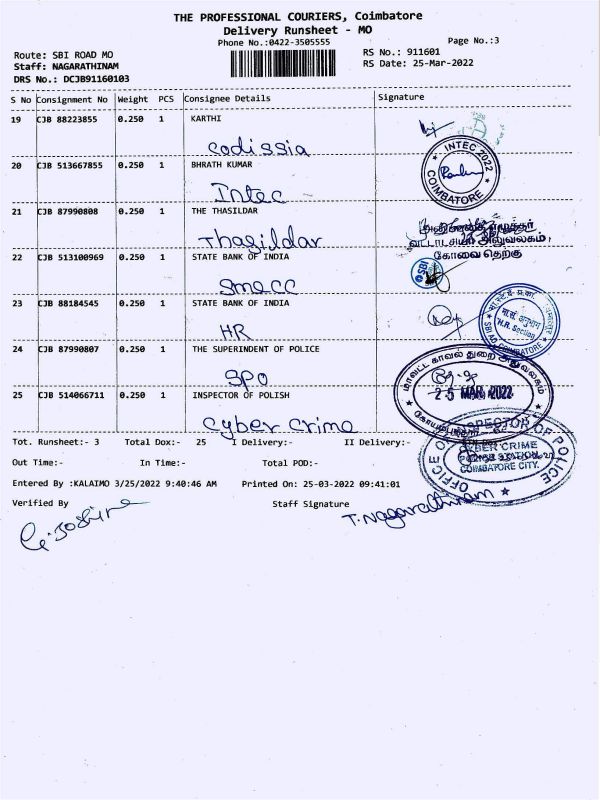 THE PROFESSIONAL COURIERS, Coimbatore
Delivery Runsheet - MO
Phone No.:0422-3505555
Page No.:3
Route: SBI ROAD MO
RS No.: 911601
Staff: NAGARATHINAM
RS Date: 25-Mar-2022
DRS No.: DCJB91160103
S No Consignment No Weight PCS Consignee Details Signature
19 CJB 88223855 0.250 1 KARTHI
codissia
20 CJB 513667855 0.250 1 BHRATH KUMAR
INTEC 2022
COIMBATORE
Intec
21 CJB 87990808 0.250 1 THE THASILDAR
Thasildar
வட்டாட்சியர் அலுவலகம்,
கோவை தெற்கு
22 CJB 513100969 0.250 1 STATE BANK OF INDIA
SBI
SMECC
23 CJB 88184545 0.250 1 STATE BANK OF INDIA
मा.सं. अनुभाग
H.R. Section
SBI AO, COIMBATORE
HR
24 CJB 87990807 0.250 1 THE SUPERINDENT OF POLICE
மாவட்ட காவல் துறை அலுவலகம்
SPO
25 MAR 2022
25 CJB 514066711 0.250 1 INSPECTOR OF POLISH
Cyber Crime
OFFICE OF INSPECTOR OF POLICE
CYBER CRIME
POLICE STATION
COIMBATORE CITY.
Tot. Runsheet:- 3 Total Dox:- 25 I Delivery:- II Delivery:-
Out Time:- In Time:- Total POD:-
Entered By :KALAIMO 3/25/2022 9:40:46 AM Printed On: 25-03-2022 09:41:01
Verified By Staff Signature
T. Nagarathinam